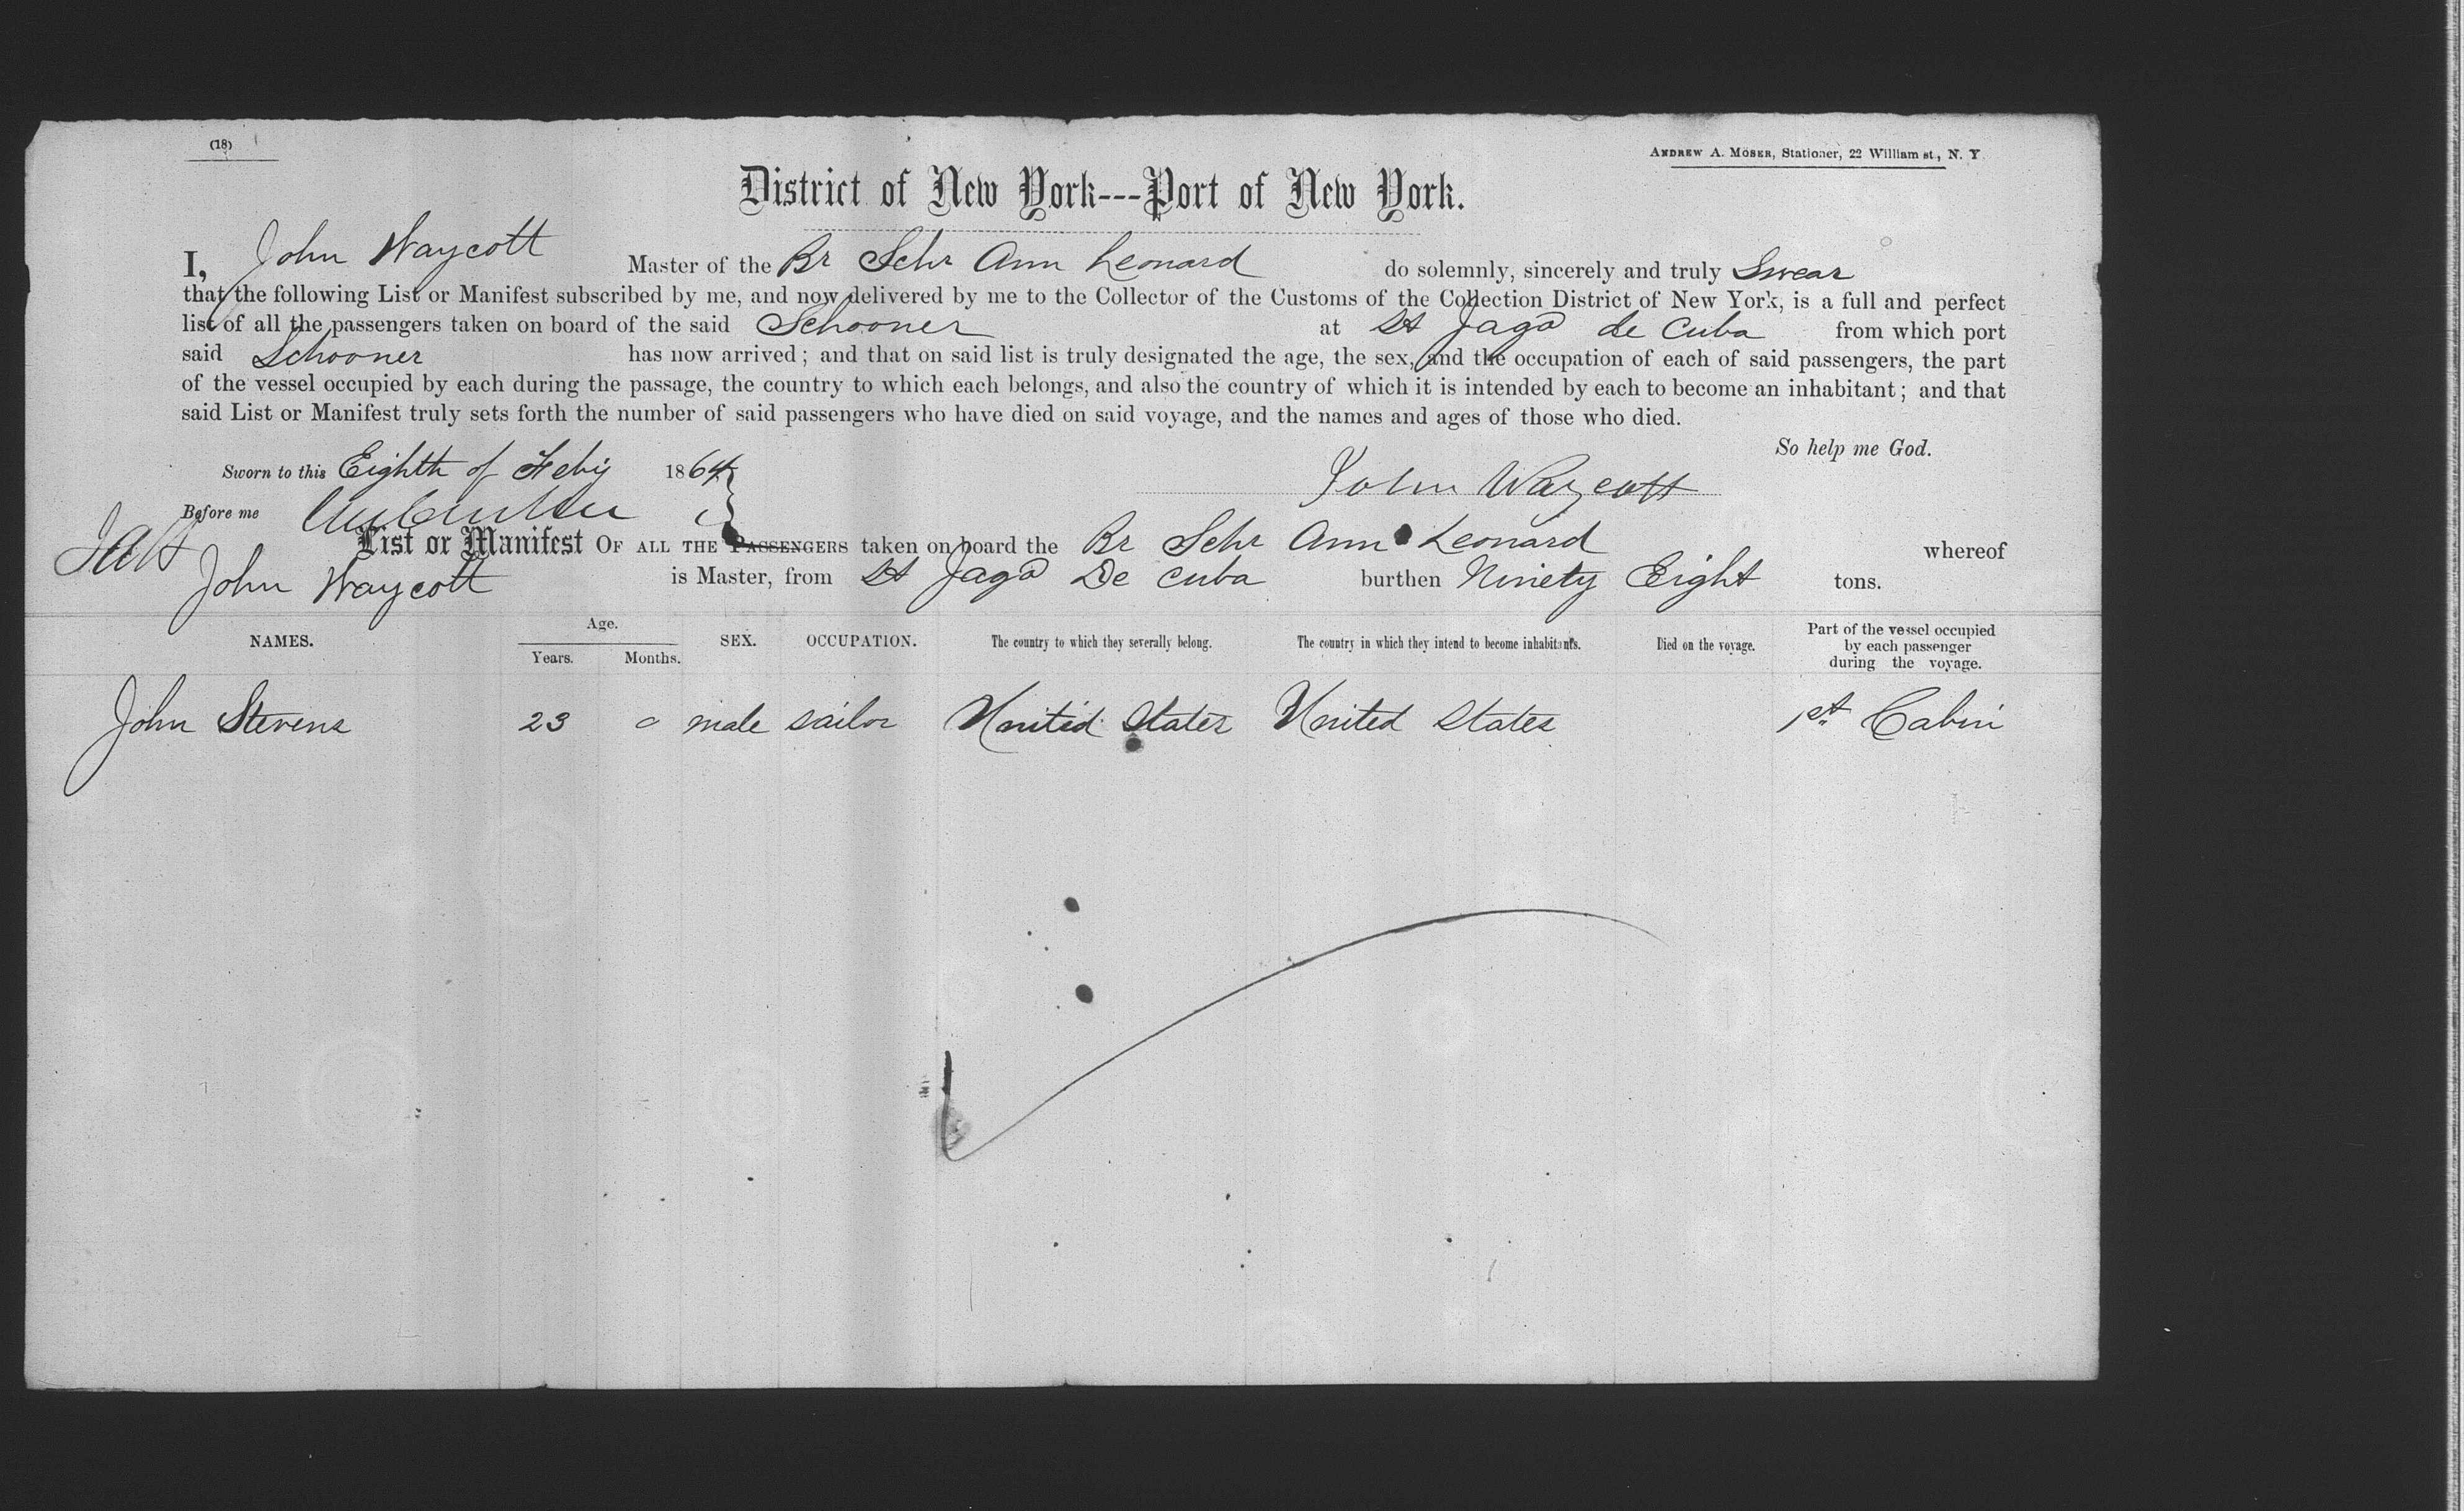 (18)
ANDREW A. MOSER, Stationer, 22 William st., N. Y
District of New York---Port of New York.
I, John Waycott Master of the Br Schr Ann Leonard do solemnly, sincerely and truly Swear
that the following List or Manifest subscribed by me, and now delivered by me to the Collector of the Customs of the Collection District of New York, is a full and perfect
list of all the passengers taken on board of the said Schooner at St Jago de Cuba from which port
said Schooner has now arrived; and that on said list is truly designated the age, the sex, and the occupation of each of said passengers, the part
of the vessel occupied by each during the passage, the country to which each belongs, and also the country of which it is intended by each to become an inhabitant; and that
said List or Manifest truly sets forth the number of said passengers who have died on said voyage, and the names and ages of those who died.
So help me God.
Sworn to this Eighth of Feby 1864
John Waycott
Before me
List or Manifest OF ALL THE PASSENGERS taken on board the Br Schr Ann Leonard whereof
John Waycott is Master, from St Jago De Cuba burthen Ninety Eight tons.
NAMES. Age. Years. Months. SEX. OCCUPATION. The country to which they severally belong. The country in which they intend to become inhabitants. Died on the voyage. Part of the vessel occupied by each passenger during the voyage.
John Stevens 23 0 male sailor United States United States 1st Cabin